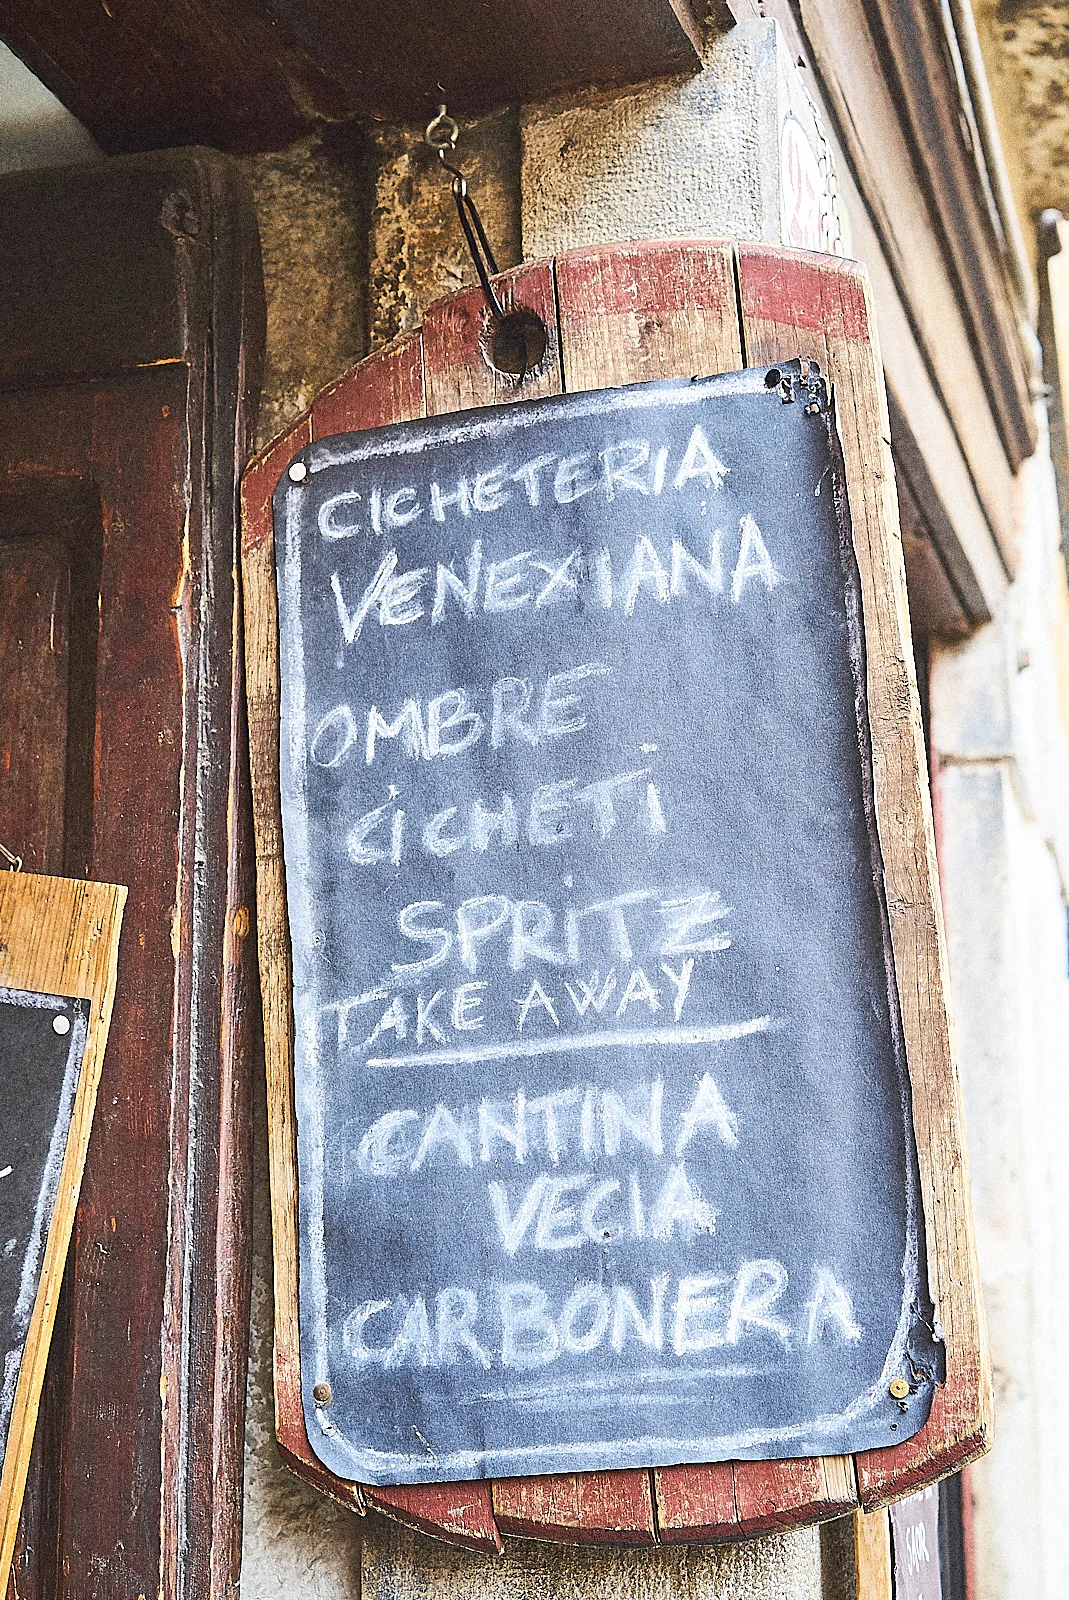 CICHETERIA
VENEXIANA
OMBRE
CICHETI
SPRITZ
TAKE AWAY
CANTINA
VECIA
CARBONERA